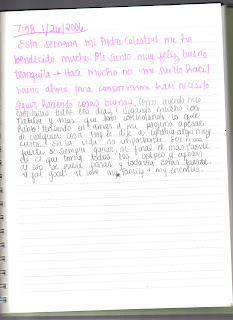 7:58 1/26/2006
Esta semana mi Padre Celestial me ha
bendecido mucho. Me siento muy feliz, bueno
tranquila + Hace mucho no me sentía haci!
bueno ahora para conservarme haci necesito
seguir haciendo cosas buenas, como leyendo mis
escrituras todos los días! ayudando mucho con
Natalia y mas que todo controlando lo que
hablo! teniendo en amor a mi projimo apesar
de cualquier cosa. Hoy le dije a Cynthia algo muy
cierto... En la vida no importante ser mas
fuerte o siempre ganar, al final el mas fuerte
es el que toma todos los golpes y apesar
de eso se puede parar y todavía estar fuerte
+ feel good! I love my family + my enemies.